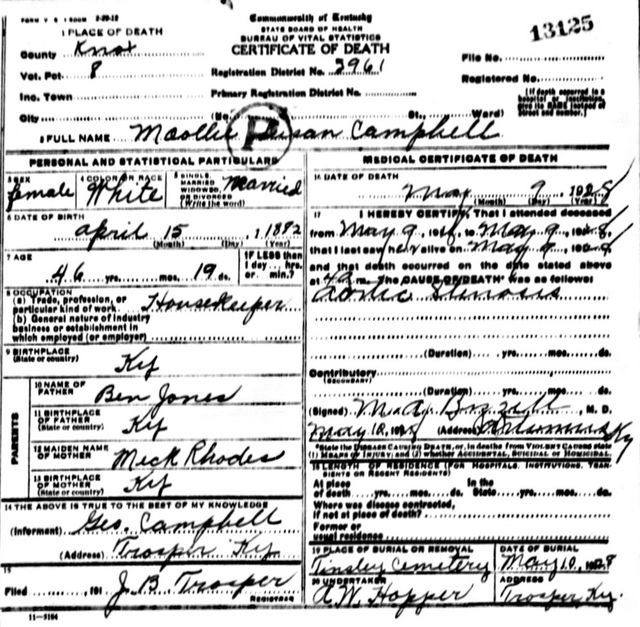 FORM V S 1
1 PLACE OF DEATH
County Knox
Vot. Pct 8
Inc. Town
City
Commonwealth of Kentucky
STATE BOARD OF HEALTH
BUREAU OF VITAL STATISTICS
CERTIFICATE OF DEATH
Registration District No. 3961
Primary Registration District No.
(No. St., Ward)
13125
File No.
Registered No.
[If death occurred in a hospital or institution, give its NAME instead of street and number.]
P
2 FULL NAME Susan Campbell
PERSONAL AND STATISTICAL PARTICULARS
3 SEX female
4 COLOR OR RACE White
5 SINGLE, MARRIED WIDOWED, OR DIVORCED (Write the word) Married
6 DATE OF BIRTH
April 15, 1882
(Month) (Day) (Year)
7 AGE
46 yrs. mos. 19 ds.
IF LESS than 1 day... hrs. or min.?
8 OCCUPATION
(a) Trade, profession, or particular kind of work Housekeeper
(b) General nature of industry business or establishment in which employed (or employer)
9 BIRTHPLACE
(State or country) Ky
PARENTS
10 NAME OF FATHER Ben Jones
11 BIRTHPLACE OF FATHER
(State or country) Ky
12 MAIDEN NAME OF MOTHER Mick Rhodes
13 BIRTHPLACE OF MOTHER
(State or country) Ky
14 THE ABOVE IS TRUE TO THE BEST OF MY KNOWLEDGE
(Informant) Geo. Campbell
(Address) Trosper Ky
15
Filed 191 J B Trosper
REGISTRAR
11-3184
MEDICAL CERTIFICATE OF DEATH
16 DATE OF DEATH
May 9, 1928
(Month) (Day) (Year)
17 I HEREBY CERTIFY, That I attended deceased
from May 9, to May 9, 1928,
that I last saw her alive on May 9,
and that death occurred on the date stated above
at m. The CAUSE OF DEATH was as follows
Aortic Stenosis
(Duration) yrs. mos. ds.
Contributory
(SECONDARY)
(Duration) yrs. mos. ds.
(Signed) M. D.
May 18, (Address) Ky
*State the DISEASE CAUSING DEATH, or, in deaths from VIOLENT CAUSES state
(1) MEANS OF INJURY; and (2) whether ACCIDENTAL, SUICIDAL or HOMICIDAL
18 LENGTH OF RESIDENCE (FOR HOSPITALS, INSTITUTIONS, TRANSIENTS OR RECENT RESIDENTS)
At place of death yrs. mos. ds. In the State yrs. mos. ds.
Where was disease contracted, if not at place of death?
Former or usual residence
19 PLACE OF BURIAL OR REMOVAL
Tinsley Cemetery
DATE OF BURIAL
May 10, 1928
20 UNDERTAKER
A.W. Hopper
ADDRESS
Trosper Ky.